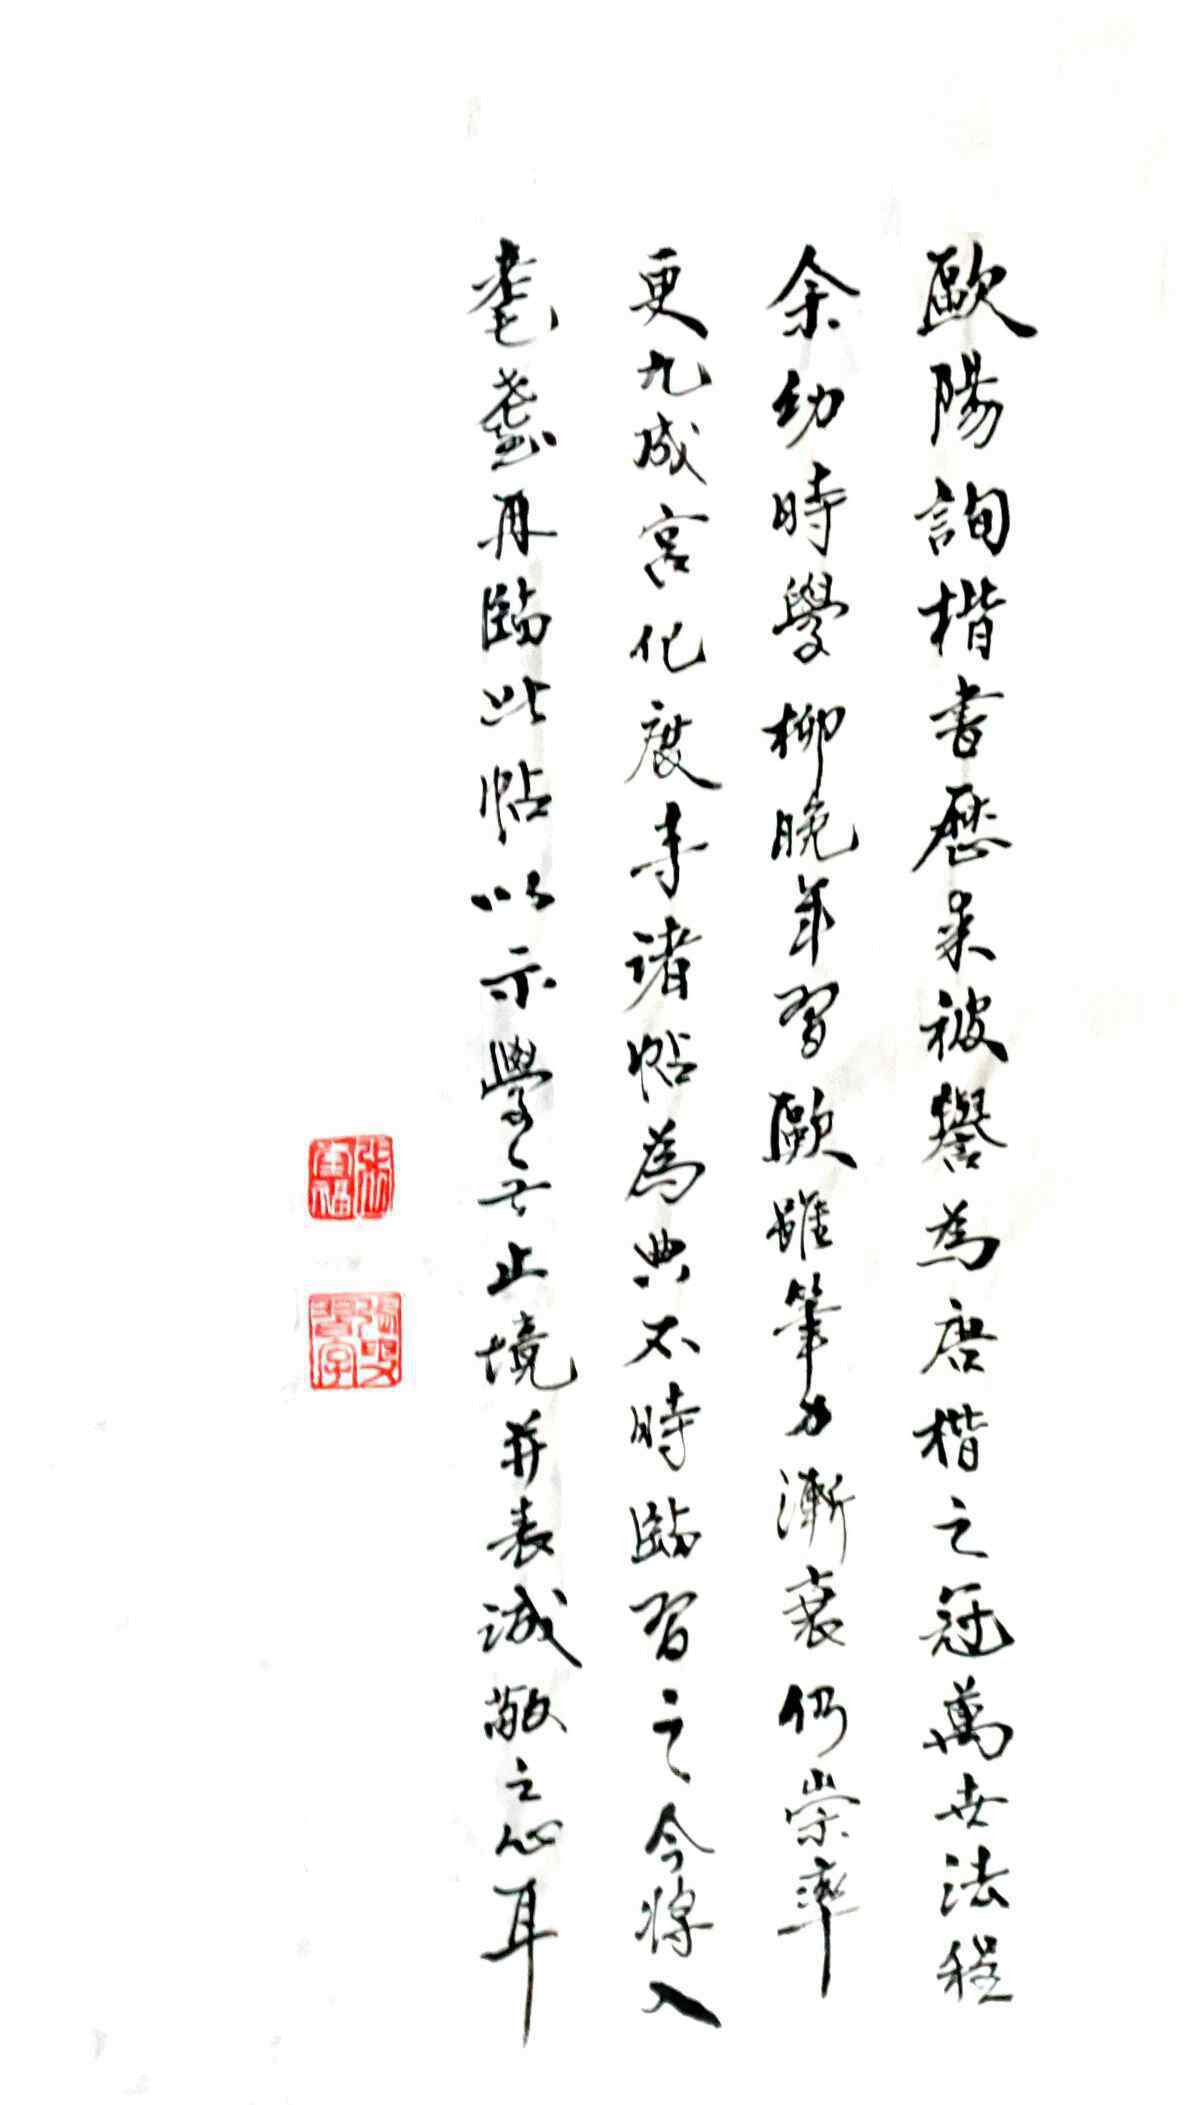 歐陽詢楷書歷來被譽為唐楷之冠萬世法程
余幼時學柳晚年習歐雖筆力漸衰仍崇率
更九成宮化度寺諸帖為典不時臨習之今將入
耄耋再臨此帖以示學無止境并表誠敬之心耳